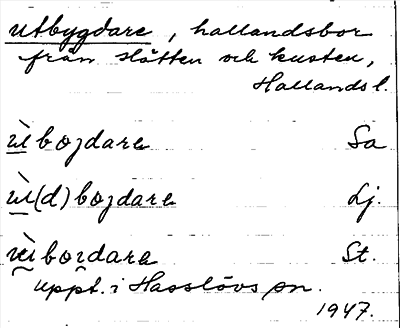 utbygdare, hallandsbor
från slätten och kusten,
Hallands l.
ùbojdara Sa
ù(d)bojdara Lj.
bordara St.
uppt. i Hasslövs sn.
1947.